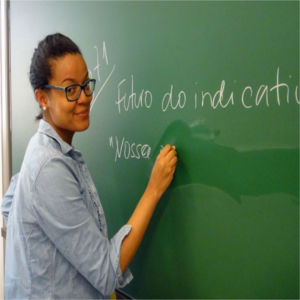 71
Futuro do indicati
"Nossa